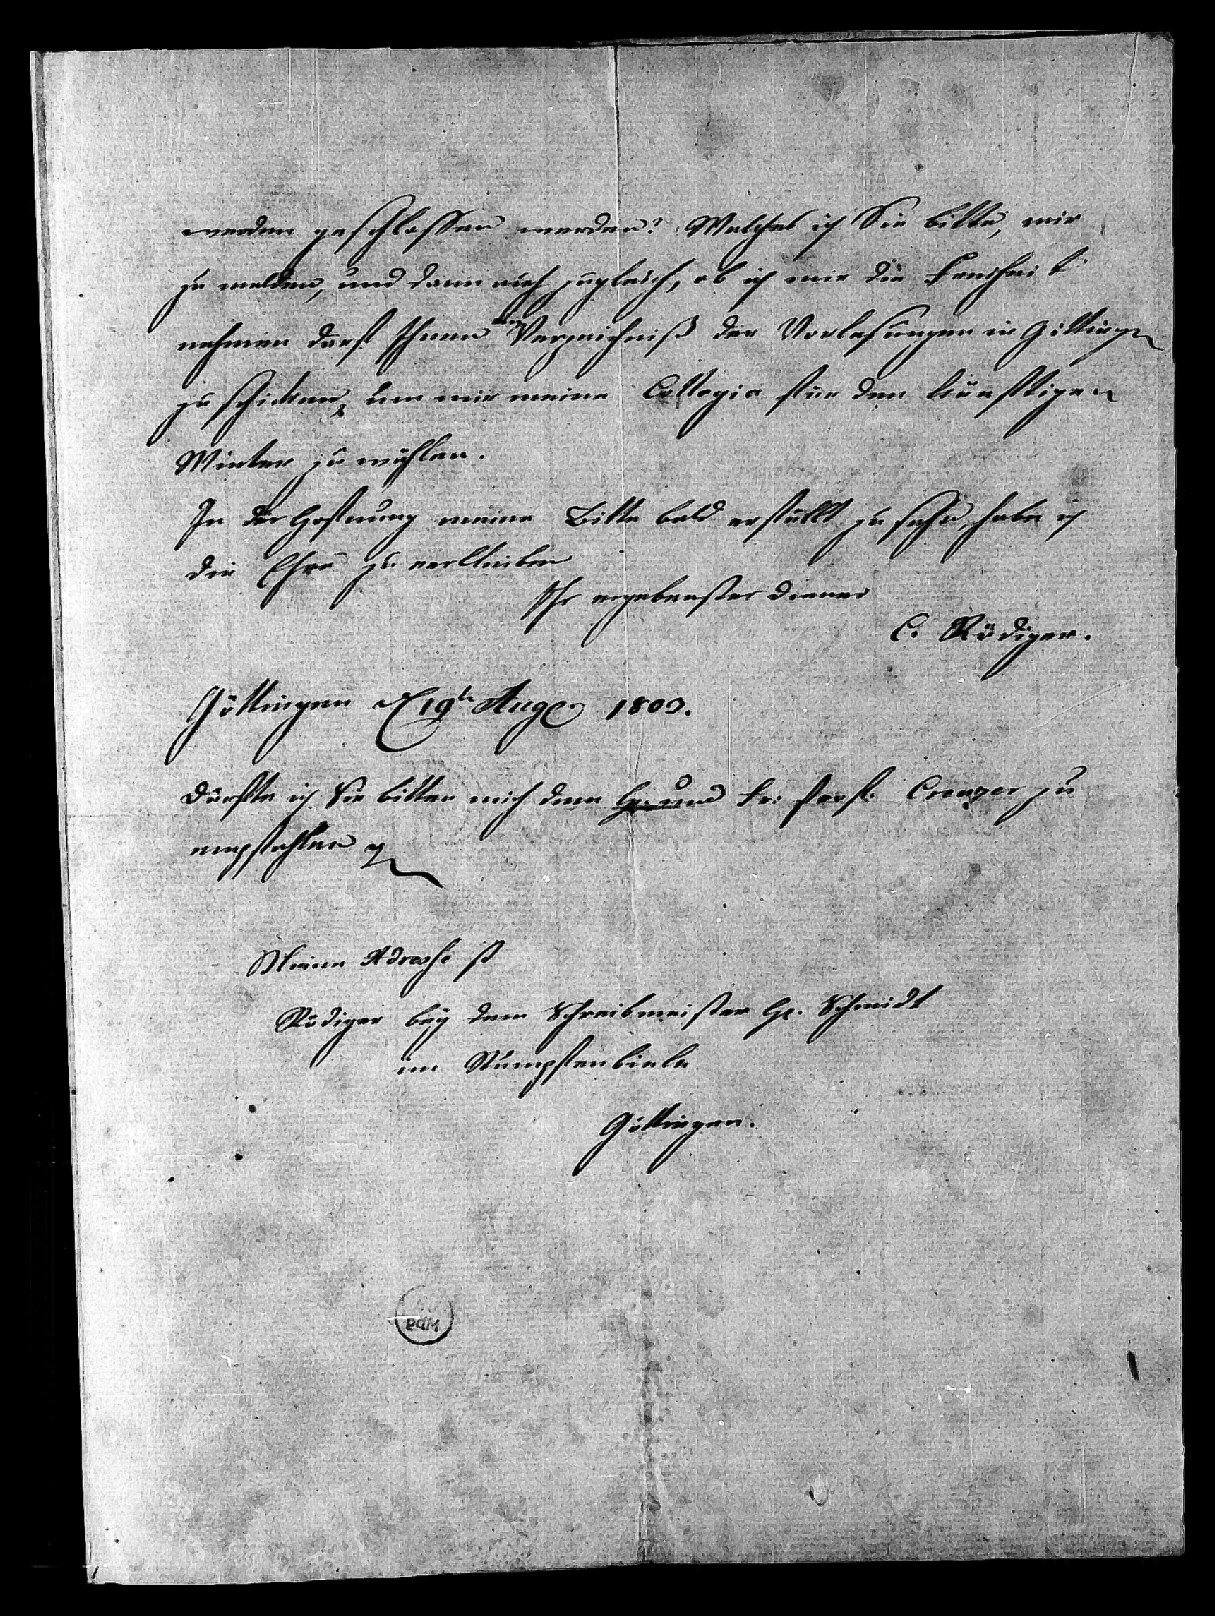 werden geschlossen werden? Welches ich Sie bitte, mir
zu melden, und dann auch zugleich, ob ich mir die Freiheit
nehmen darf Ihnen Verzeichniß der Vorlesungen in Götting
zu schicken, um mir meine Collegia für den künftigen
Winter zu wählen.
In der Hofnung meine Bitte bald erfüllt zu sehn, habe ich
die Ehre zu verbleiben
Ihr ergebenster Diener
C. Rödiger.
Göttingen 19t Aug. 1803.
Dürfte ich Sie bitten mich dem Hr. und Fr. Prof. Creuzer zu
empfehlen
Meine Adresse ist
Rödiger bey dem Schreibmeister Hr. Schmidt
im Stumpfenbiele
Göttingen.